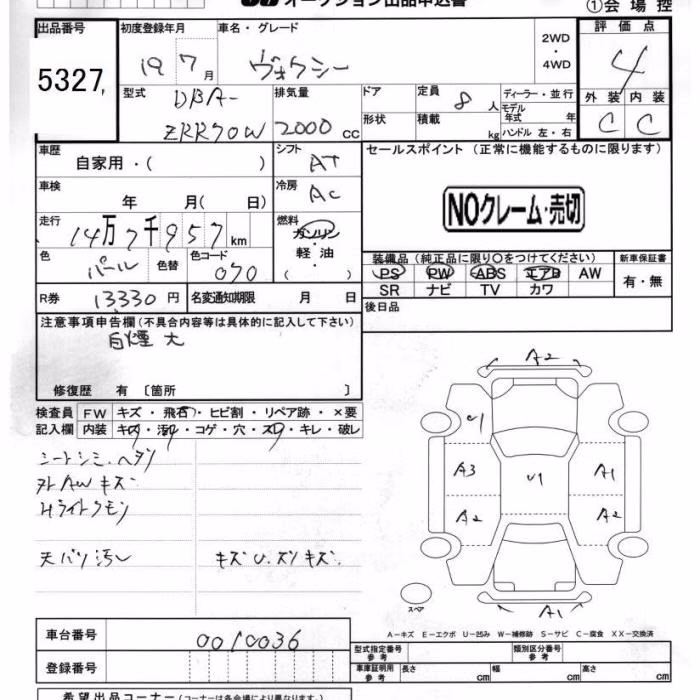 オークション出品申込書
①会場控
出品番号 初度登録年月 車名・グレード 2WD・4WD 評価点
5327, 19 7月 ヴォクシー 4
型式 DBA-ZRR70W 排気量 2000 cc ドア 形状 定員 8人 積載 kg ディーラー・並行 モデル年式 年 ハンドル 左・右 外装 C 内装 C
車歴 自家用・( ) シフト AT セールスポイント (正常に機能するものに限ります)
車検 年 月(日) 冷房 AC
NOクレーム・売切
走行 14万7千957km 燃料 ガソリン 軽油 ( ・ )
色 パール 色替 色コード 070
装備品(純正品に限り○をつけてください) 新車保証書
PS PW ABS エアB AW 有・無
SR ナビ TV カワ
R券 13330円 名変通知期限 月 日 後日品
注意事項申告欄(不具合内容等は具体的に記入して下さい)
白煙大
修復歴 有 〔箇所 〕
検査員 FW キズ・飛石・ヒビ割・リペア跡・×要
記入欄 内装 キズ・汚れ・コゲ・穴・スレ・キレ・破レ
シートシミ、ヘタリ
外AWキズ
Hライトクモリ
天バリ汚レ キズU.ズリキズ
A2
U1
A3 U1 A1
A2 A2
スペア A1
A−キズ E−エクボ U−凹み W−補修跡 S−サビ C−腐食 XX−交換済
車台番号 0010036 型式指定番号 参考 類別区分番号 参考
登録番号 車庫証明用 参考 長さ cm 幅 cm 高さ cm
希望出品コーナー(コーナーは各会場により異なります。)